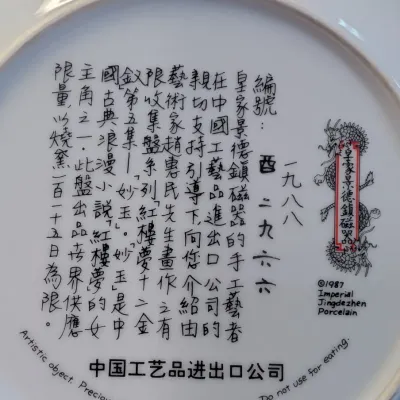 皇家景德鎮磁器
©1987
Imperial
Jingdezhen
Porcelain
一九八八
編號:
酉 二九六六
皇家景德鎮磁器的手工藝者
在中國工藝品進出口公司的
親切支持引導下向您介紹由
藝術家趙惠民先生畫作之有
限收集盤系列「紅樓夢十二金
釵」第五集—妙玉。妙玉是中
國古典浪漫小說「紅樓夢」的女
主角之一。此盤出品世界供應
限量以燒窯一百一十五日為限。
中国工艺品进出口公司
Artistic object. Precious Do not use for eating.